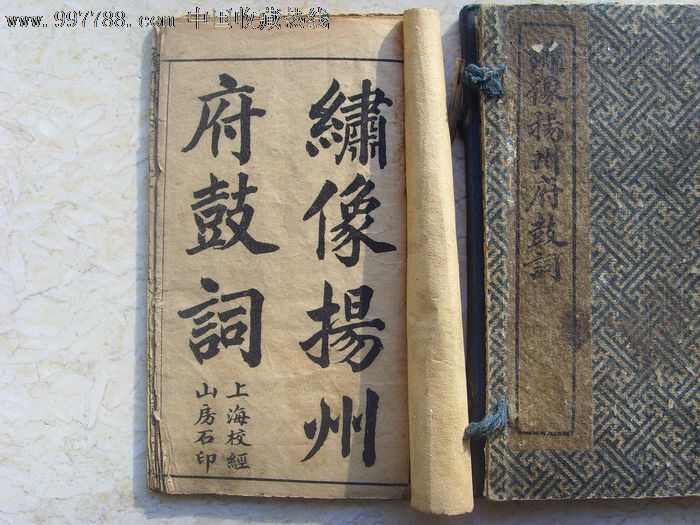 www.997788.com 中国收藏热线
繡像揚州
府鼓詞
上海校經
山房石印
繡像揚州府鼓詞